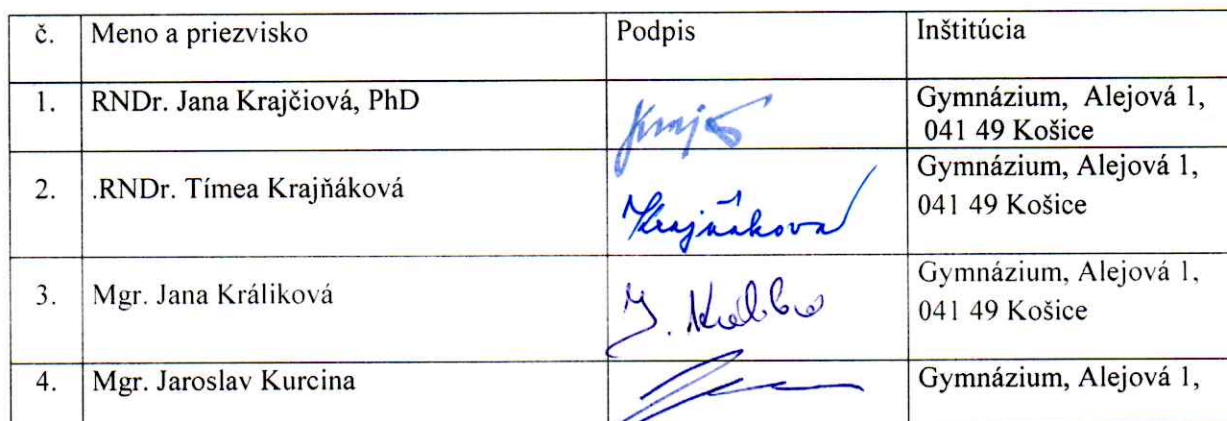 č. Meno a priezvisko Podpis Inštitúcia
1. RNDr. Jana Krajčiová, PhD Gymnázium, Alejová 1,
041 49 Košice
2. .RNDr. Tímea Krajňáková Krajňáková Gymnázium, Alejová 1,
041 49 Košice
3. Mgr. Jana Králiková Gymnázium, Alejová 1,
041 49 Košice
4. Mgr. Jaroslav Kurcina Gymnázium, Alejová 1,